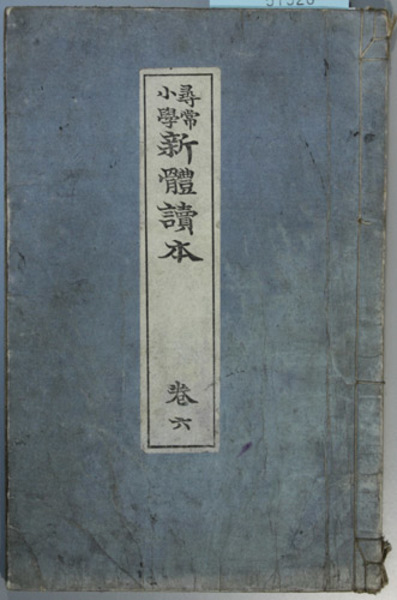 尋常
小學
新體讀本
卷六